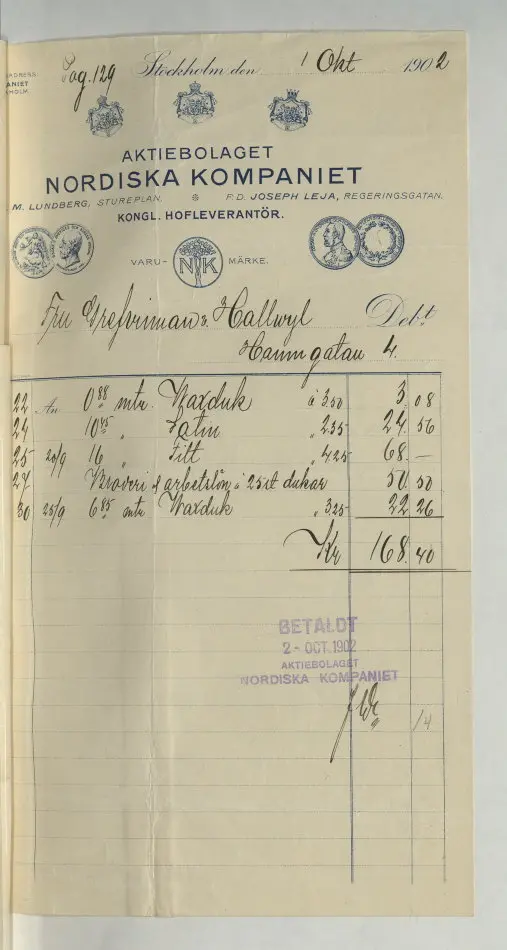 Pag. 129 Stockholm den 1 Okt 1902
AKTIEBOLAGET
NORDISKA KOMPANIET
M. LUNDBERG, STUREPLAN. F.D. JOSEPH LEJA, REGERINGSGATAN.
KONGL. HOFLEVERANTÖR.
VARU- NK MÄRKE.
Fru Grefvinnan v. Hallwyl Debet
Hamngatan 4.
22 An 0,88 mtr. Waxduk à 3.50 3.08
24 10,45 " Satin " 2.35 24.56
25 20/9 16 " Filt " 4.25 68.—
27 Broderi & arbetslön à 25 st dukar 50.50
30 25/9 6,85 mtr Waxduk " 3.25 22.26
Kr 168.40
BETALDT
2 - OCT. 1902
AKTIEBOLAGET
NORDISKA KOMPANIET
/4